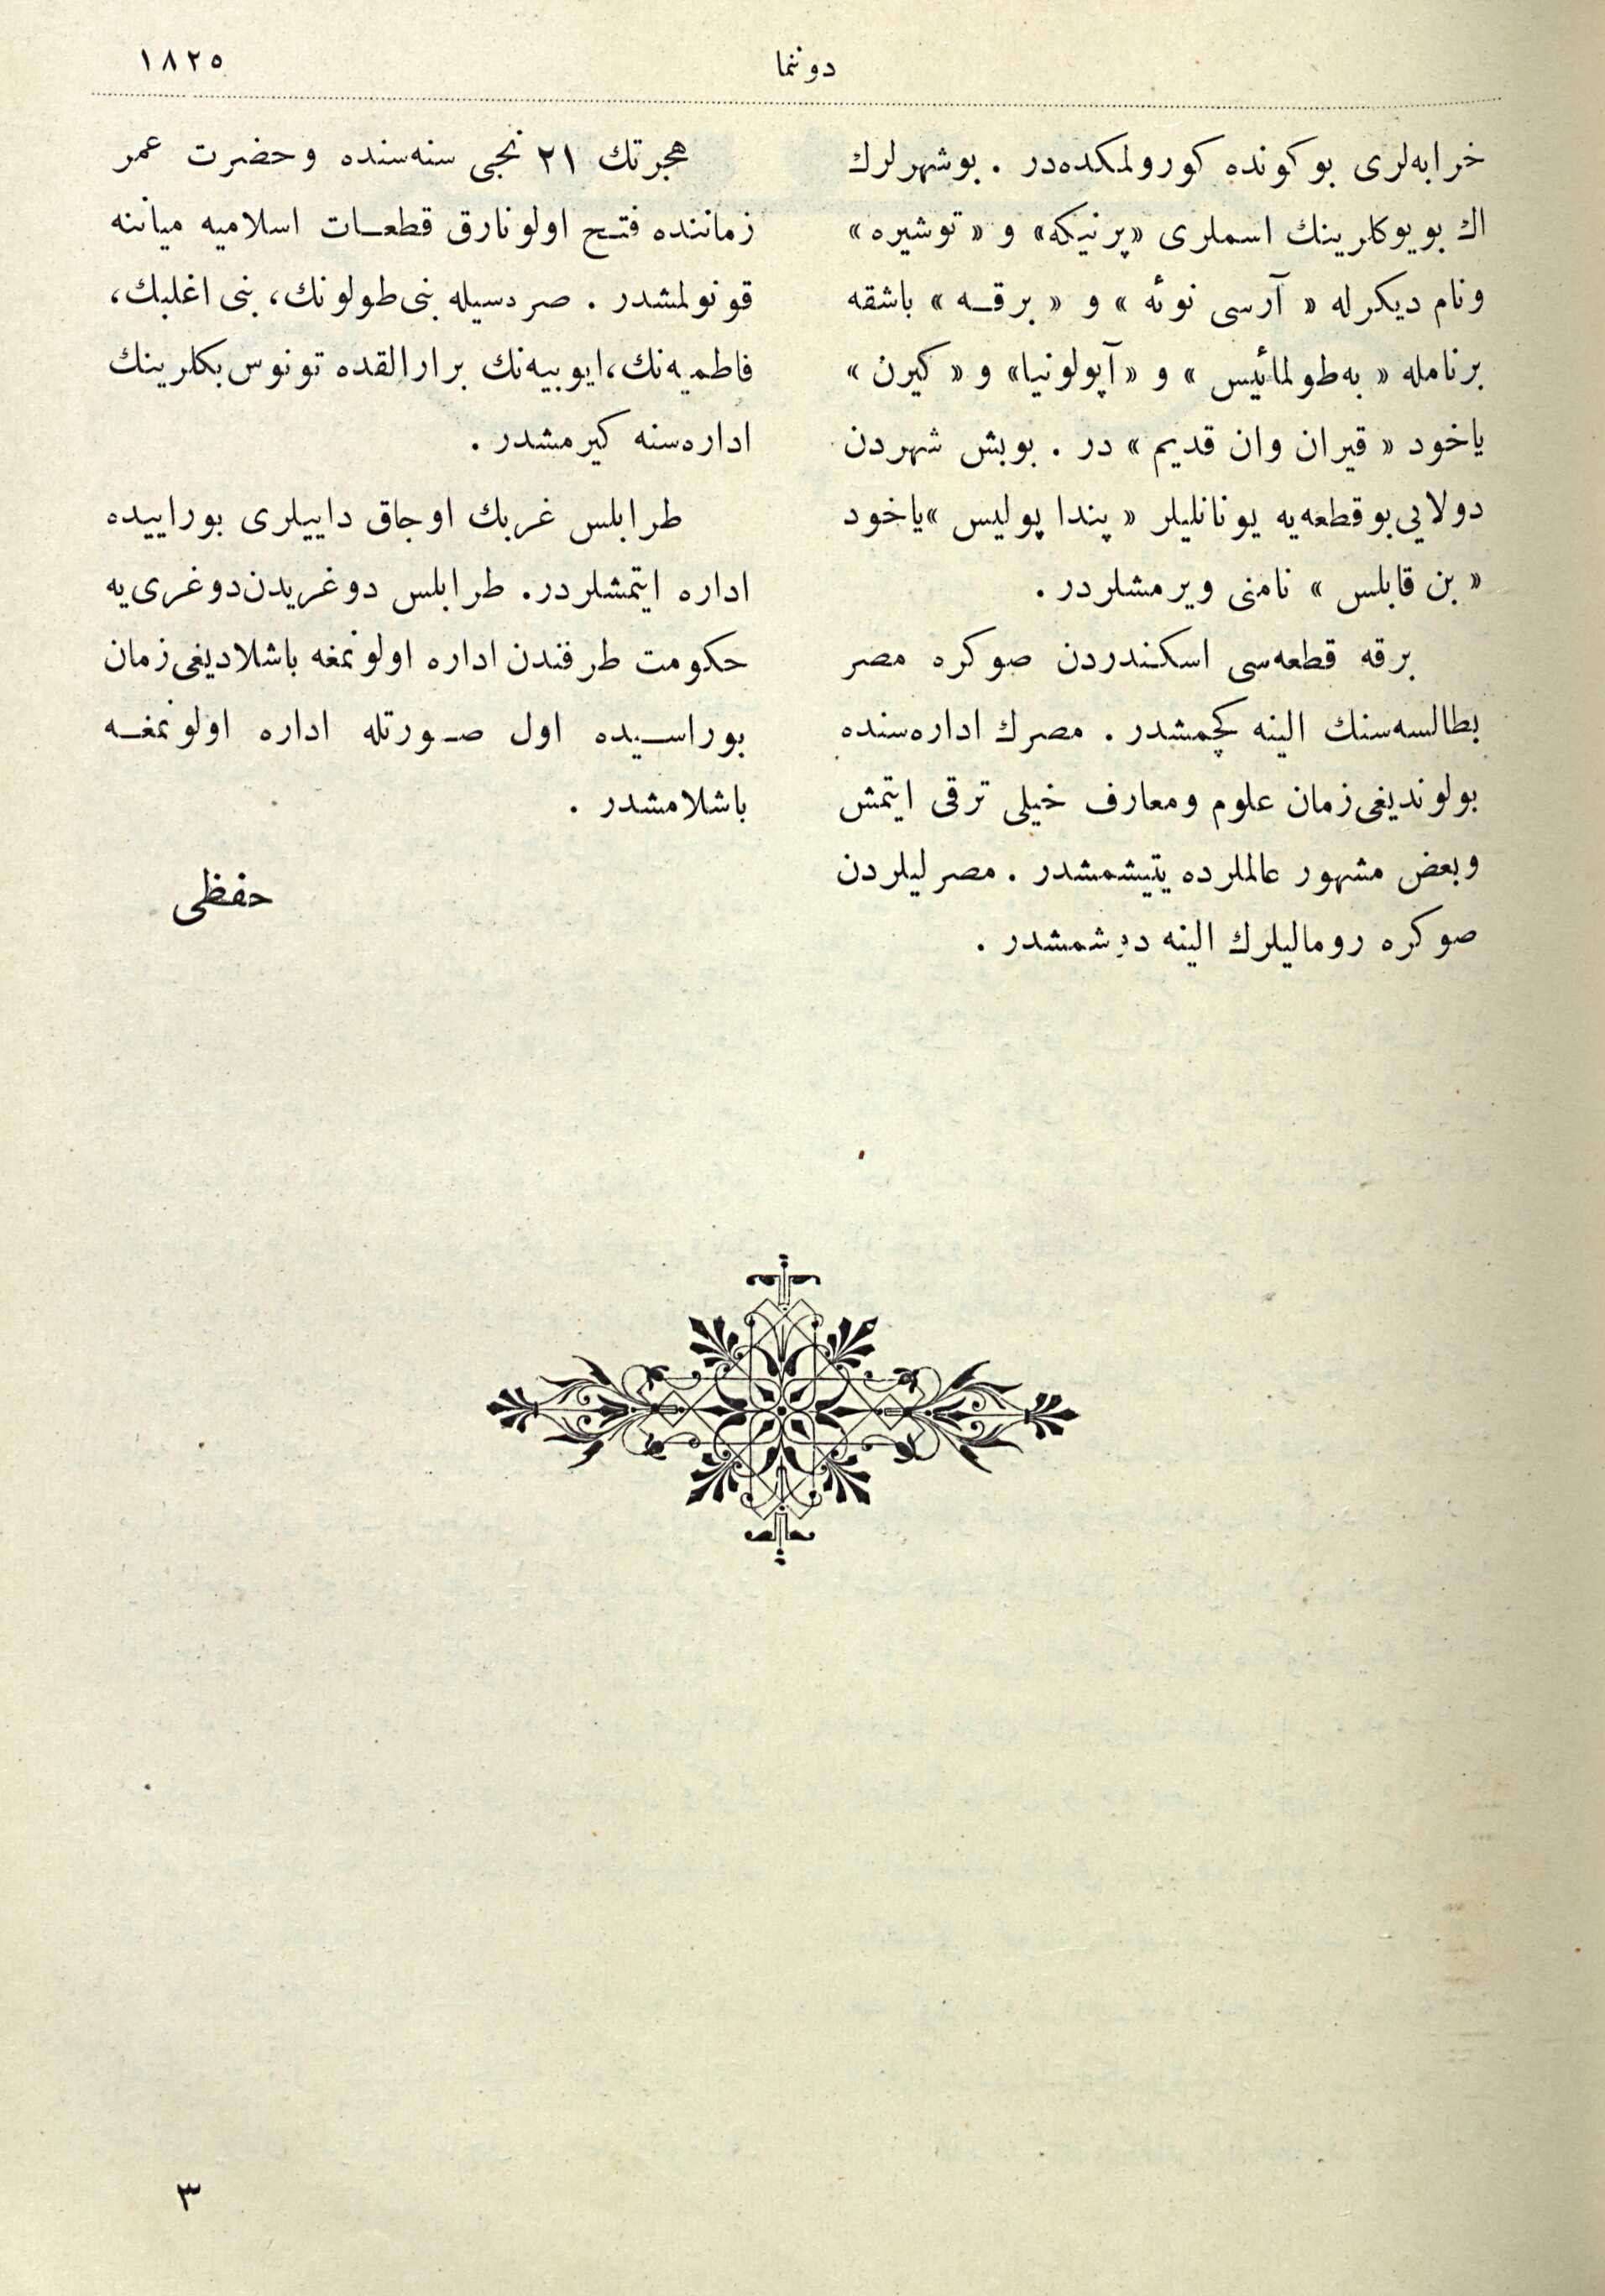 دوننما
١٨٢٥
خرابه‌لری بو كونده كورولمكده‌در . بوشهرلرك
اك بویوكلرینك اسملری «پرنیكه» و « توشیره »
ونام دیكرله « آرسی نوئه » و « برقه » باشقه
برنامله « به‌طولمائیس » و «آپولونیا» و « كیرن »
یاخود « قیران وان قدیم » در . بوبش شهردن
دولایی بو قطعه‌یه یونانلیلر « پندا پولیس »یاخود
« بن قابلس » نامنی ویرمشلردر .
برقه قطعه‌سی اسكندردن صوكره مصر
بطالسه‌سنك الینه كچمشدر . مصرك اداره‌سنده
بولوندیغی زمان علوم ومعارف خیلی ترقی ایتمش
وبعض مشهور عالملرده یتیشمشدر . مصرلیلردن
صوكره رومالیلرك الینه دوشمشدر .
هجرتك ٢١ نجی سنه‌سنده وحضرت عمر
زماننده فتح اولونارق قطعات اسلامیه میاننه
قونولمشدر . صره‌سیله بنی طولونك، بنی اغلبك،
فاطمیه‌نك،ایوبیه‌نك برارالقده تونوس بكلرینك
اداره‌سنه كیرمشدر .
طرابلس غربك اوجاق داییلری بوراییده
اداره ایتمشلردر. طرابلس دوغریدن‌دوغری‌یه
حكومت طرفندن اداره اولونمغه باشلادیغی زمان
بوراسیده اول صورتله اداره اولونمغه
باشلامشدر .
حفظی
٣